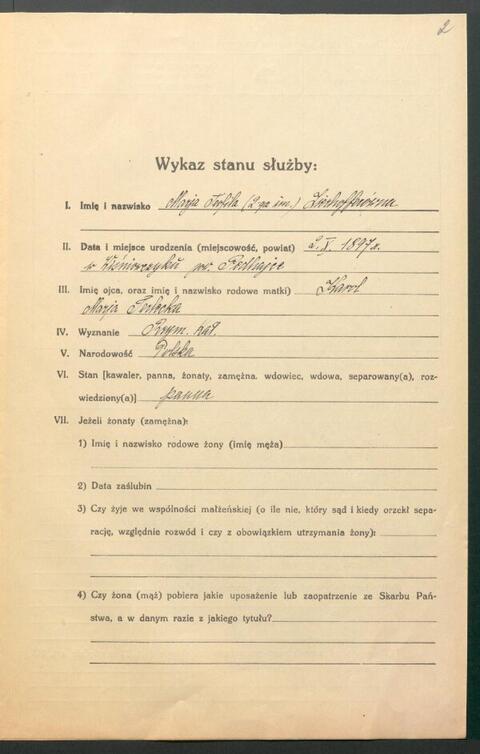 2
Wykaz stanu służby:
I. Imię i nazwisko Marja Teofila (2-ga im.)
II. Data i miejsce urodzenia (miejscowość, powiat) 2. X. 1897 r.
w Wiśniowczyku pow. Podhajce
III. Imię ojca, oraz imię i nazwisko rodowe matki) Karol
Marja
IV. Wyznanie Rzym. kat.
V. Narodowość Polska
VI. Stan [kawaler, panna, żonaty, zamężna, wdowiec, wdowa, separowany(a), roz-
wiedziony(a)] panna
VII. Jeżeli żonaty (zamężna):
1) Imię i nazwisko rodowe żony (imię męża)
2) Data zaślubin
3) Czy żyje we wspólności małżeńskiej (o ile nie, który sąd i kiedy orzekł sepa-
rację, względnie rozwód i czy z obowiązkiem utrzymania żony):
4) Czy żona (mąż) pobiera jakie uposażenie lub zaopatrzenie ze Skarbu Pań-
stwa, a w danym razie z jakiego tytułu?